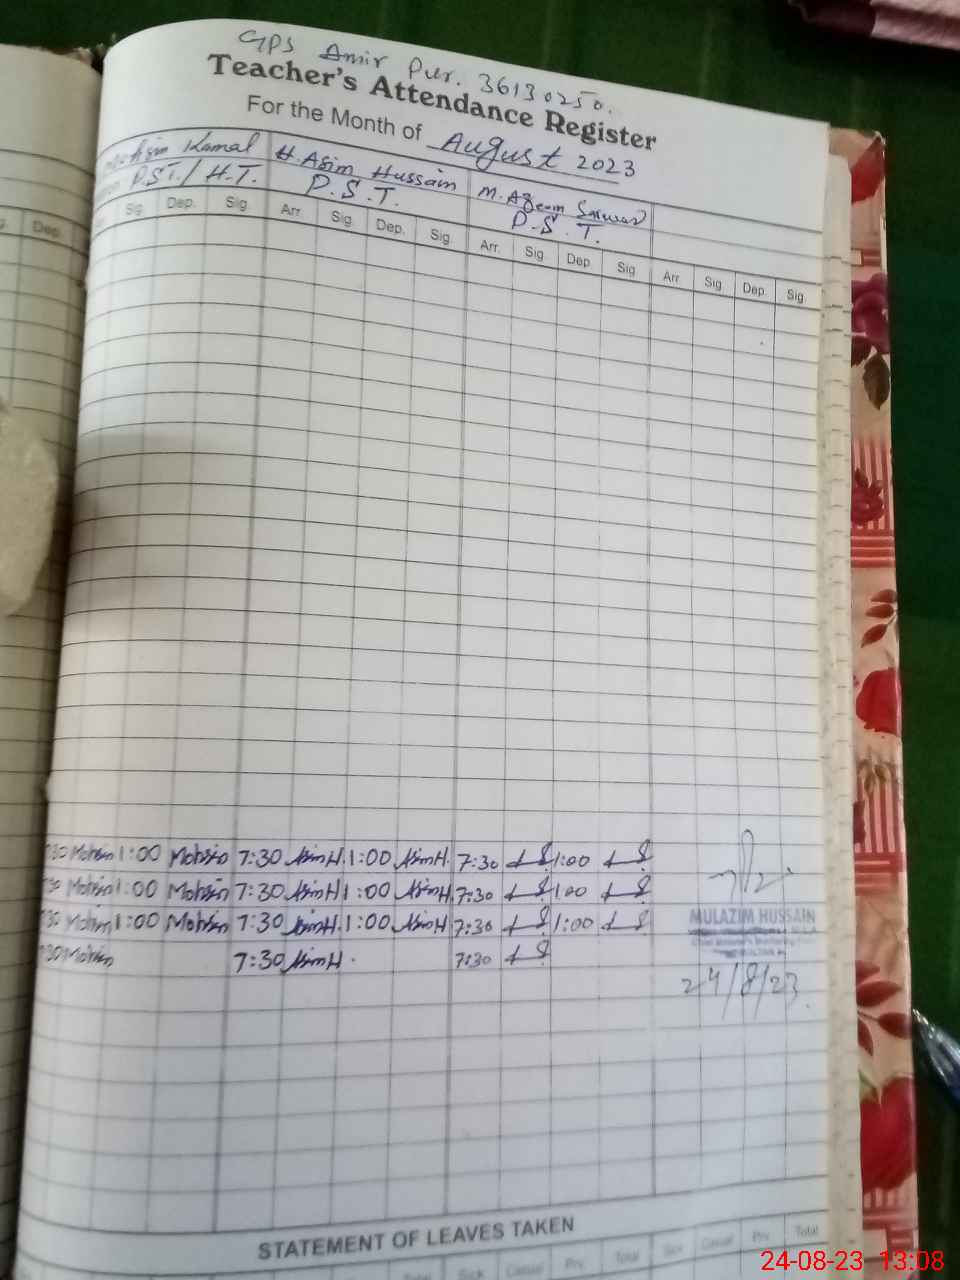 GPS Amir Pur. 36130250.
Teacher's Attendance Register
For the Month of August 2023
Kamal H. Asim Hussain M. Azeem Sarwar
P.S.T./H.T. P.S.T. P.S.T.
Dep. Sig. Dep. Sig Arr. Sig. Dep. Sig Arr. Sig. Dep. Sig Arr. Sig. Dep. Sig.
:30 Mohsin 1:00 Mohsin 7:30 AsimH. 1:00 AsimH. 7:30 1:00
:30 Mohsin 1:00 Mohsin 7:30 AsimH 1:00 AsimH. 7:30 1:00
:30 Mohsin 1:00 Mohsin 7:30 AsimH. 1:00 AsimH. 7:30 1:00
MULAZIM HUSSAIN
:30 Mohsin 7:30 AsimH. 7:30
24/8/23.
STATEMENT OF LEAVES TAKEN
Total Sick Casual Prv. Total Sick Casual Prv. Total
24-08-23 13:08